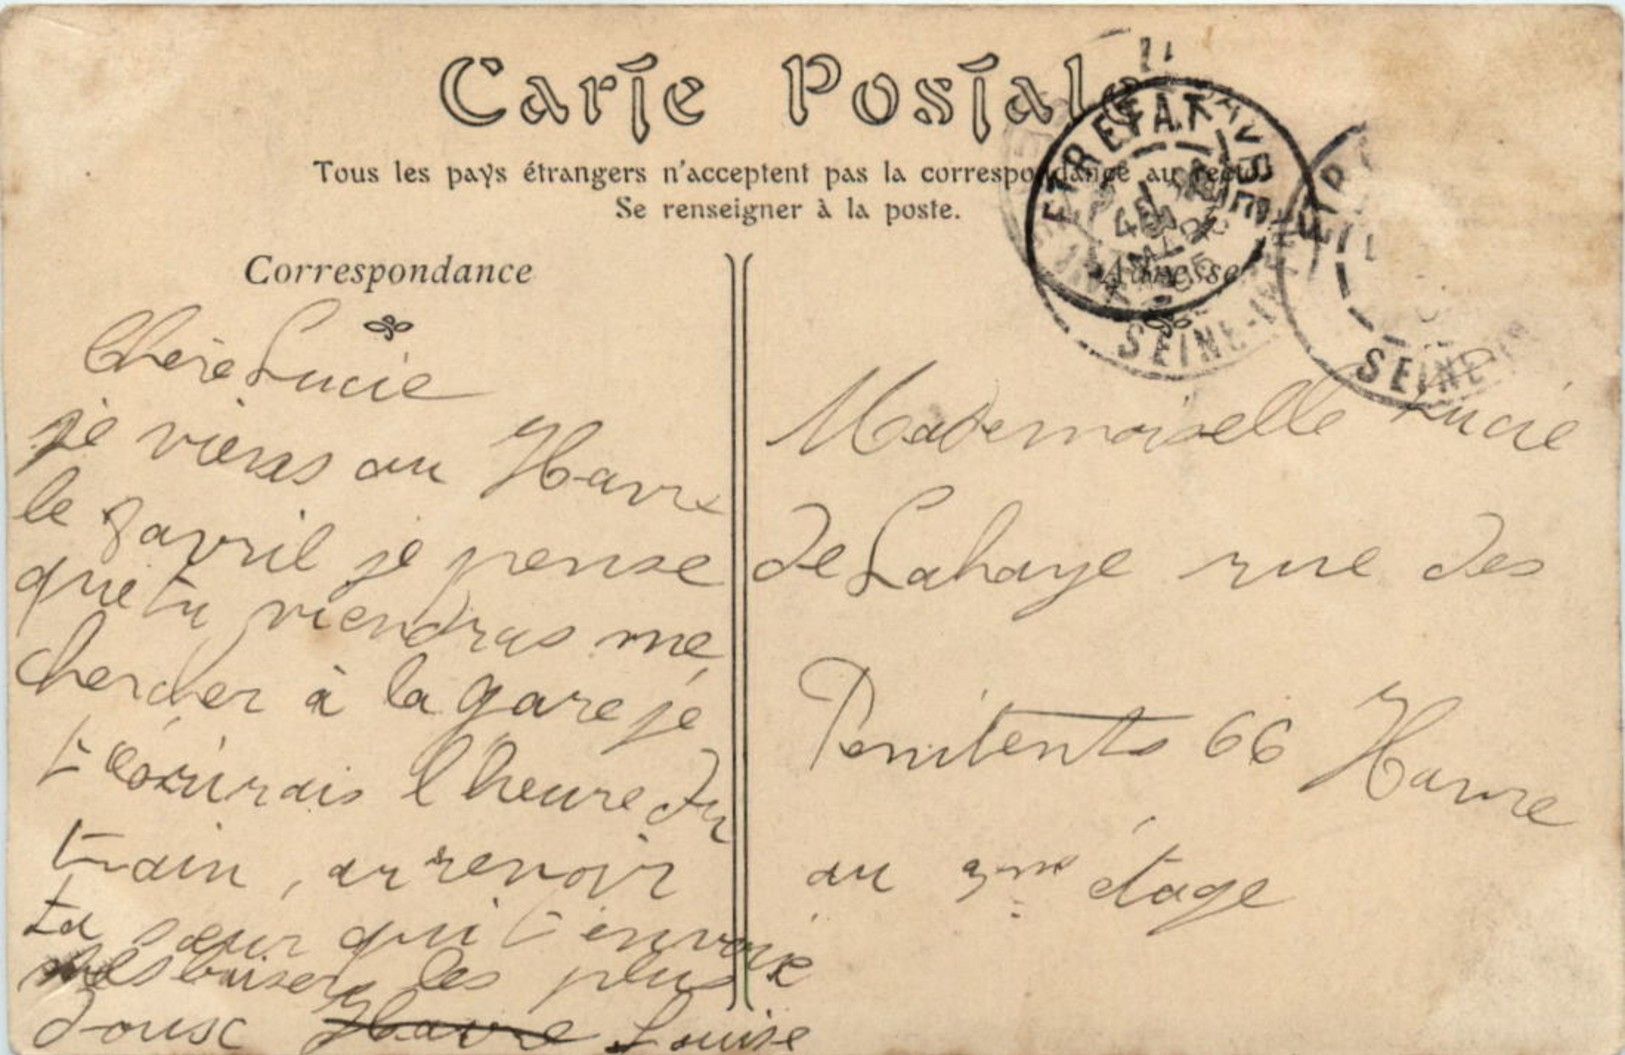 Carte Postale
Tous les pays étrangers n'acceptent pas la correspondance au recto
Se renseigner à la poste.
Correspondance
Chère Lucie
je viens au Havre
le 8 avril je pense
que tu viendras me
chercher à la gare je
t'écrirais l'heure du
train, au revoir
ta sœur qui t'envoie
mes baisers les plus
doux Havre Louise
Adresse
Mademoiselle Lucie
de Lahaye rue des
Penitents 66 Havre
au 3me étage
ETRETAT
SEINE-INF
SEINE-IN